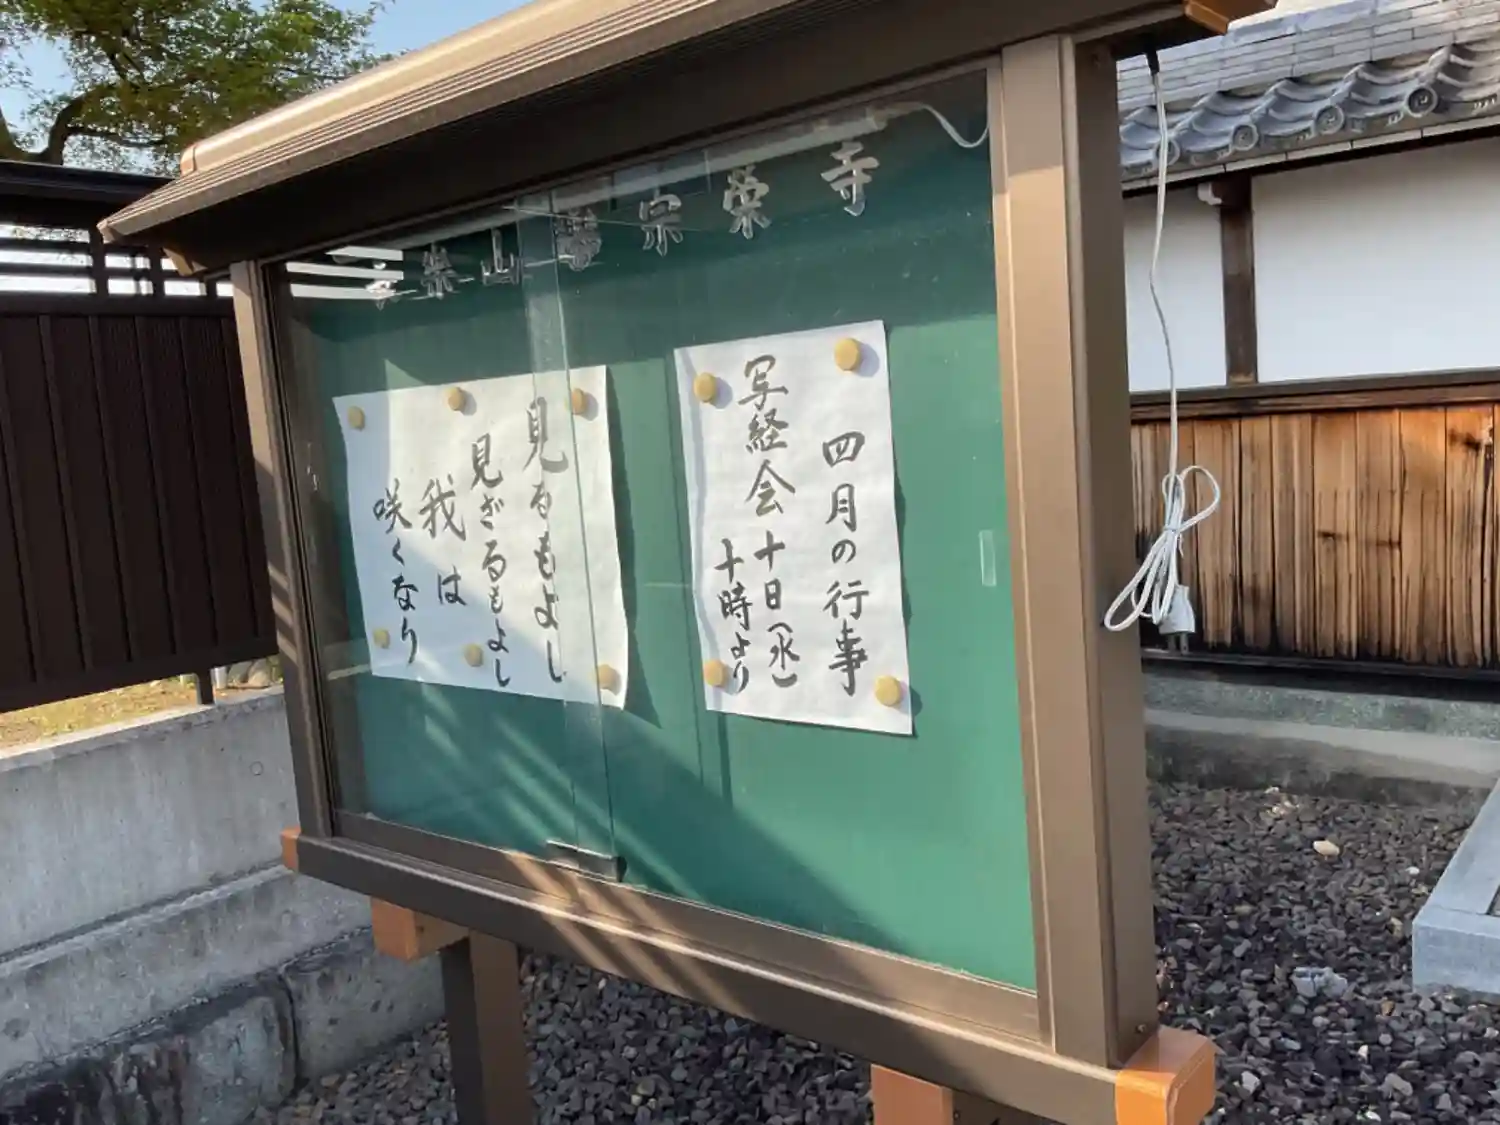 宗榮寺
四月の行事
写経会十日(水)
十時より
見るもよし
見ざるもよし
我は
咲くなり